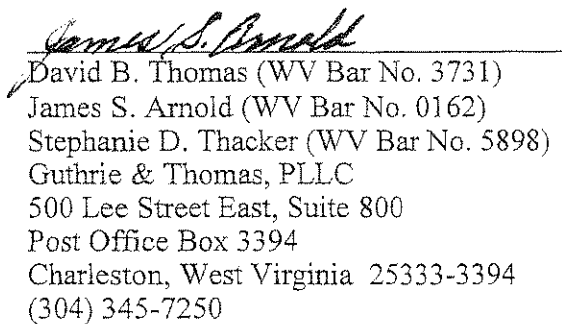 James S. Arnold
David B. Thomas (WV Bar No. 3731)
James S. Arnold (WV Bar No. 0162)
Stephanie D. Thacker (WV Bar No. 5898)
Guthrie & Thomas, PLLC
500 Lee Street East, Suite 800
Post Office Box 3394
Charleston, West Virginia 25333-3394
(304) 345-7250